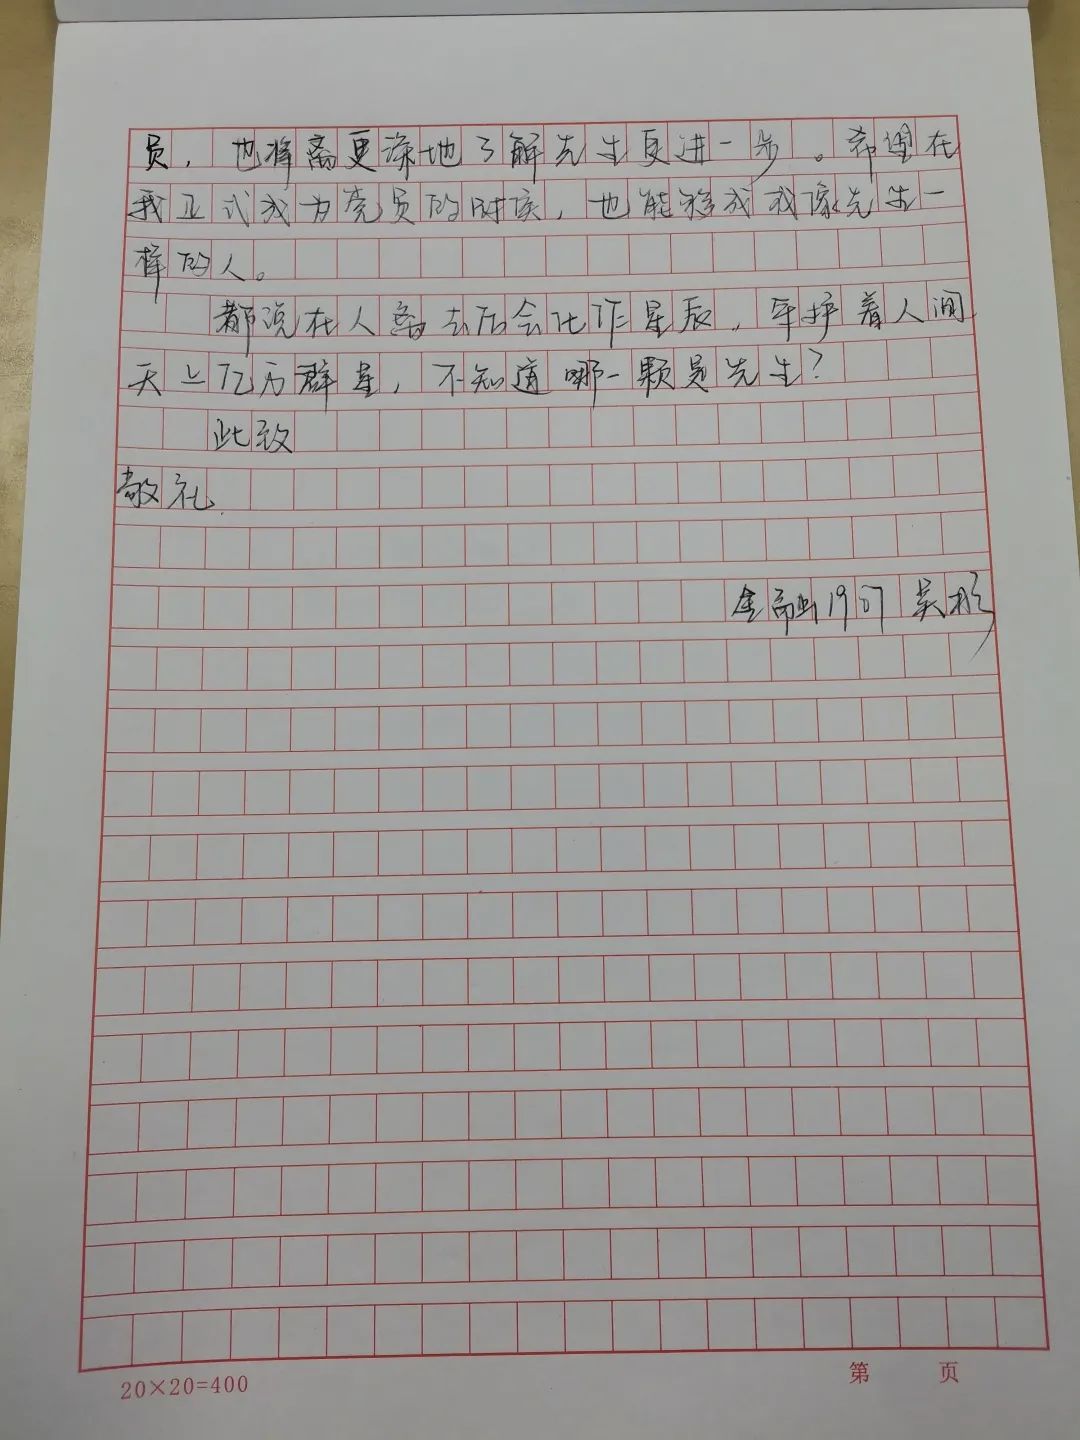 员，也将离更深地了解先生更进一步。希望在
我正式成为党员的时候，也能够成我像先生一
样的人。
都说在人离去后会化作星辰，守护着人间
天上亿万群星，不知道哪一颗是先生？
此致
敬礼
金融1907 吴彬
20×20=400
第 页